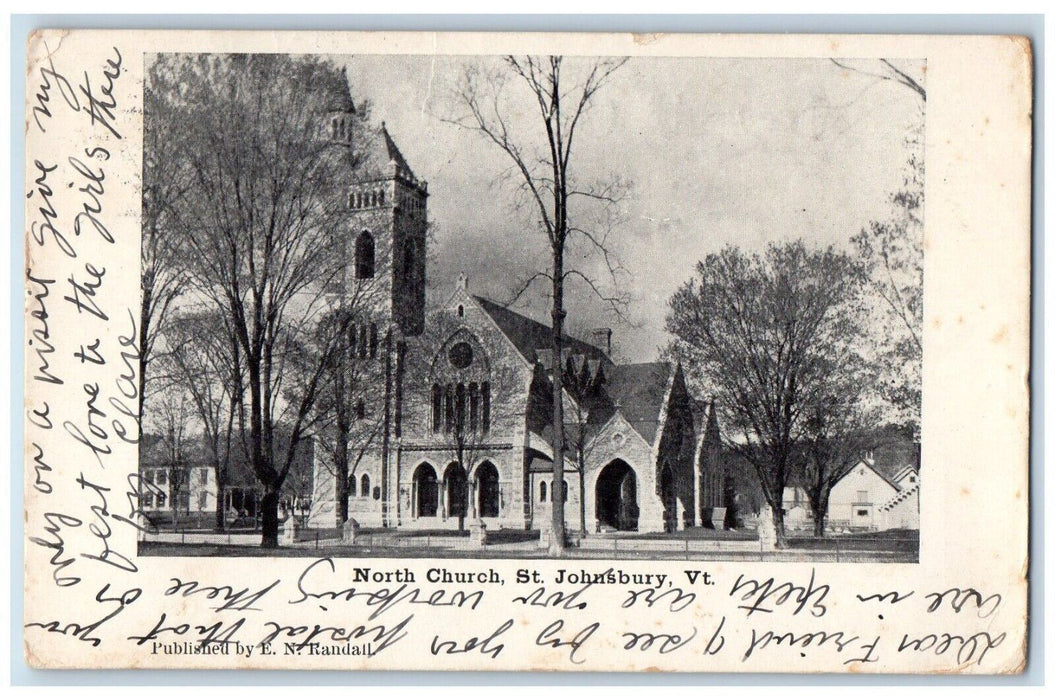 North Church, St. Johnsbury, Vt.
Published by E. N. Randall
Dear Friend I see by your postal that you
are in are you working there or
only on a visit give my
best love to the girls there
from Clare